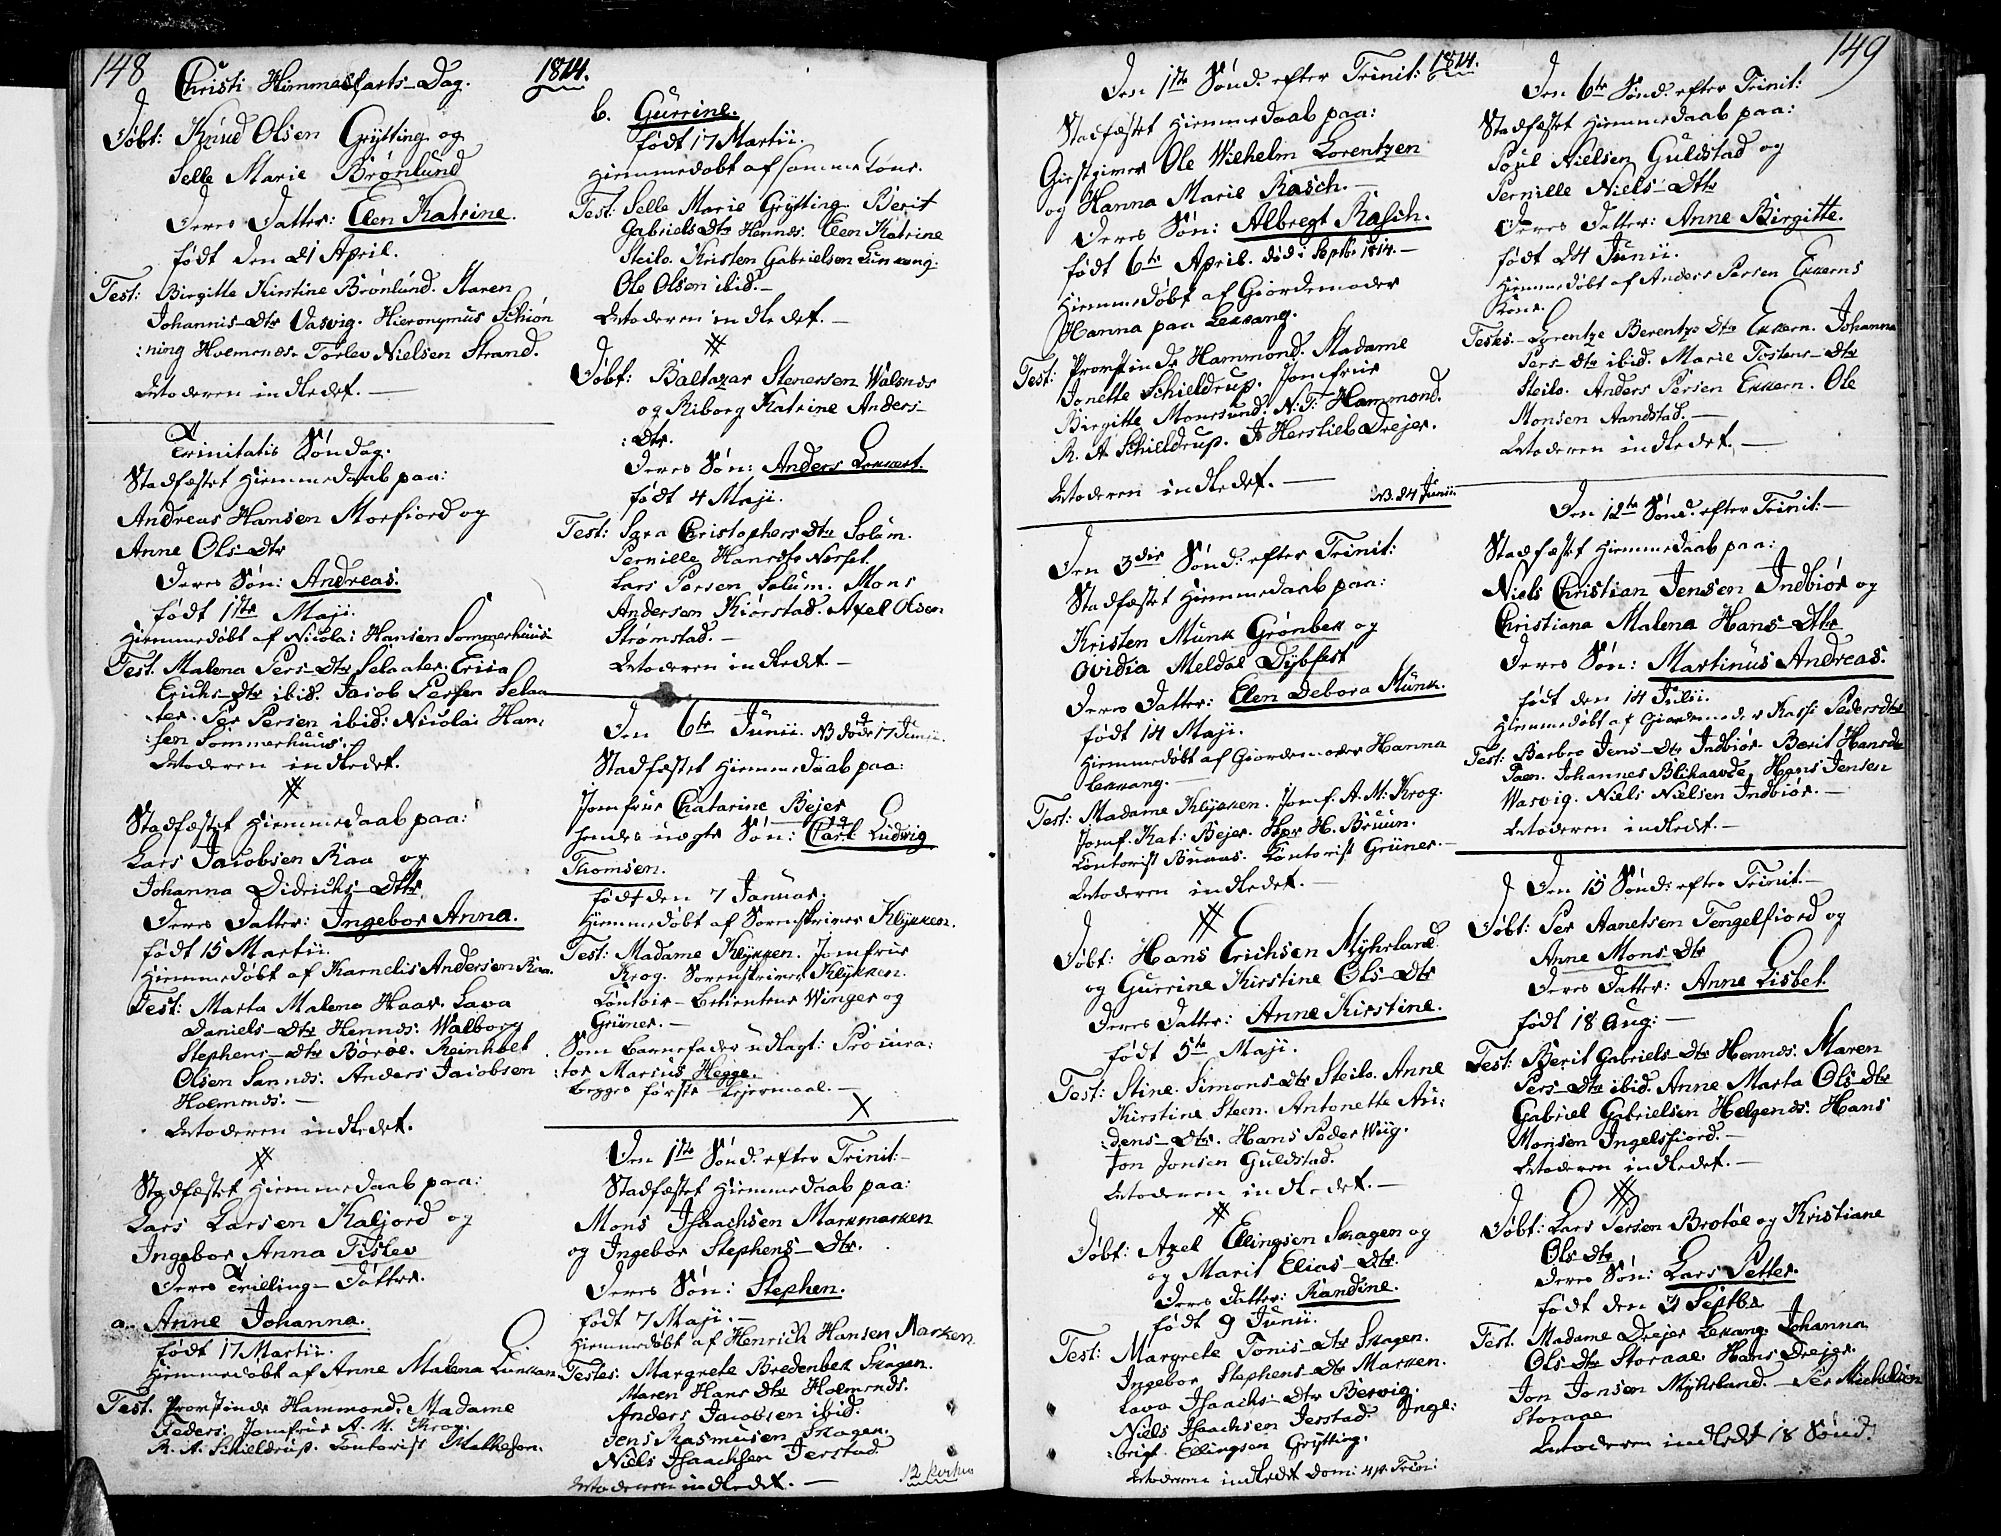 148
Christi Himmelfarts-Dag.
1814.
Døbt: Knud Olsen Grÿtting og
Selle Marie Brønlund
Deres Datter: Elen Katrine.
født den 21 April.
Test: Birgitte Kirstine Brønlund. Maren
Johannis-Dtr Vasvig. Hieronymus Schiøn
:ning Holmenes. Torlev Nielsen Strand.
Moderen indledet. —
Trinitatis Søndag.
Stadfæstet Hiemmedaab paa:
Andreas Hansen Morfiord og
Anne Ols-Dtr
Deres Søn: Andreas.
født 1ste Maji.
Hiemmedøbt af Nicolai Hansen Sommerhuus
Test. Malena Pers-Dtr Selaater. Erica
Erichs-Dtr ibid. Jacob Persen Selaa
ter. Per Persen ibid: Nicolai Han:
:sen Sommerhuus.
Moderen indledet.
Stadfæstet Hiemmedaab paa:
Lars Jacobsen Raa og
Johanna Didrichs-Dttr
Deres Datter: Ingebor Anna.
født 15 Martii.
Hiemmedøbt af Karnelis Andersen Raa.
Test: Marta Malena Haar. Lava
Daniels-Dtr Hennes. Walborg
Stephens-Dtr Børøe. Reinholt
Olsen Sannes. Anders Jacobsen
Holmenes. —
Moderen indledet.
Stadfæstet Hiemmedaab paa:
Lars Larsen Kaljord og
Ingebor Anna Tislev
Deres Trilling-Døttre.
a. Anne Johanna.
født 17 Martii.
Hiemmedøbt af Anne Malena Lunkan
Test. Provstinde Hammond. Madame
Feders. Jomfrue A. M. Krog.
R. A. Schieldrup. Contorist Malkesen.
b. Gurrine.
født 17 Martii.
Hiemmedøbt af samme Kone.
Test: Selle Marie Grÿtting. Berit
Gabriels Dtr Hennes. Elen Katrine
Steilo. Kristen Gabrielsen Lunkang.
Ole Olsen ibid. —
Moderen indledet. —
Døbt: Baltazar Stenersen Walsnes
og Riborg Katrine Anders-
:Dtr.
Deres Søn: Anders Lekkert.
født 4 Maji.
Test: Sara Christophers Dtr Solum.
Pernille Hansdtr Norset.
Lars Persen Solum. Mons
Andersen Kiørstad. Axel Olsen
Strømstad. —
Moderen indledet. —
Den 6te Junii. NB døde 17 Junii.
Stadfæstet Hiemmedaab paa:
Jomfrue Chatarine Bejer
hendes uægte Søn: Carl Ludvig
Thomsen.
født den 7 Januar.
Hiemmedøbt af Sorenskriver Klÿkken.
Test: Madame Klÿkken. Jomfrue
Krog. Sorenskriver Klÿkken.
Contoir-Betientene Winger og
Grüner. —
Som Barnefader udlagt: Procura:
:tor Marius Hegge.
begges første Lejermaal. —
Den 1ste Sønd. efter Trinit: —
Stadfæstet Hiemmedaab paa:
Mons Isaachsen Markmarken
og Ingebor Stephens-Dtr.
Deres Søn: Stephen.
født 7 Maji. —
Hiemmedøbt af Henrich Hansen Marken
Testes: Margrete Bredenbek Skagen.
Maren Hans Dtr Holmenes.
Anders Jacobsen ibid.
Jens Rasmusen Skagen.
Niels Isaachsen Jerstad
Moderen indledet. —
149
Den 1ste Sønd. efter Trinit:
1814.
Stadfæstet Hiemmedaab paa:
Giestgiver Ole Wilhelm Lorentzen
og Hanna Marie Rasch. —
Deres Søn: Albregt Rasch.
født 6te April. død i Septbr 1814. —
Hiemmedøbt af Giordemoder
Hanna paa Lekkang.
Test: Provstinde Hammond. Madame
Jonette Schieldrup. Jomfrue
Birgitte Monesund. N: T: Hammond.
R. A Schieldrup. A Herstieb Drejer.
Moderen indledet. —
NB. 24 Junii.
Den 3die Sønd: efter Trinit:
Stadfæstet Hiemmedaab paa:
Kristen Munk Grønbek og
Ovidia Meldal Dÿbfest
Deres Datter: Elen Debora Munk.
født 14 Maji.
Hiemmedøbt af Giordemoder Hanna
Lekkang. —
Test: Madame Klÿkken. Jomf. A. M. Krog.
Jomf. Kat: Bejer. Hpr H. Bruun.
Contorist Buaas. Contorist Grüner. —
Moderen indledet. —
Døbt: Hans Erichsen Mÿhrland
og Gurrine Kirstine Ols-Dtr
Deres Datter: Anne Kirstine.
født 5te Maji.
Test: Stine Simons-Dtr Steilo. Anne
Kirstine Steen. Antonette Au:
:dens-Dtr. Hans Peder Wiig.
Jon Jonsen Guldstad.
Moderen indledet. —
Døbt: Axel Ellingsen Skagen og
og Marit Elias-Dtr.
Deres Datter: Randine.
født 9 Junii.
Test: Margrete Tonis-Dtr Skagen.
Ingebor Stephens-Dtr Marken.
Lava Isaachs-Dtr Bervig.
Niels Isaachsen Jerstad. Inge:
:brigt Ellingsen Grÿtting.
Moderen indledet Dom: 4 p. Trin:
Den 6te Sønd. efter Trinit:
Stadfæstet Hiemmedaab paa:
Poul Nielsen Guldstad og
Pernille Niels-Dttr
Deres Datter: Anne Birgitte.
født 24 Junii.
Hiemmedøbt af Anders Persen Ekkerns
Kone.
Testes. — Lorentze Berentz Dtr Ekkern. Johanna
Pers-Dtr ibid. Marie Tostens-Dtr
Steilo. Anders Persen Ekkern. Ole
Monsen Aandstad. —
Moderen indledet. —
Den 12te Sønd: efter Trinit: —
Stadfæstet Hiemmedaab paa:
Niels Christian Jensen Indbiør og
Christiana Malena Hans-Dttr
Deres Søn: Martinus Andreas.
født den 14 Julii.
Hiemmedøbt af Giordemoder Kassi Pedersdtr
Test: Barbro Jens-Dtr Indbiør. Berit Hansdtr
Taen. Johannes Blikaavde. Hans Jensen
Wasvig. Niels Nielsen Indbiør. —
Moderen indledet. —
Den 15 Sønd: efter Trinit: —
Døbt: Per Aanetsen Tengelfiord og
Anne Mons-Dtr
Deres Datter: Anne Lisbet.
født 18 Aug: —
Test: Berit Gabriels-Dtr Hennes. Maren
Pers-Dtr ibid. Anne Marta Ols-Dtr
Gabriel Gabrielsen Helgenes. Hans
Monsen Ingelsfiord. —
Moderen indledet. —
Døbt: Lars Persen Brotøe og Kristiane
Ols Dtr
Deres Søn: Lars Petter.
født den 21 Septbr
Test. Madame Drejer Lekang. Johanna
Ols-Dtr Storaae. Hans Drejer.
Jon Jonsen Mÿhrland. — Per Michelsen
Storaae
Moderen indledt 18 Sønd.